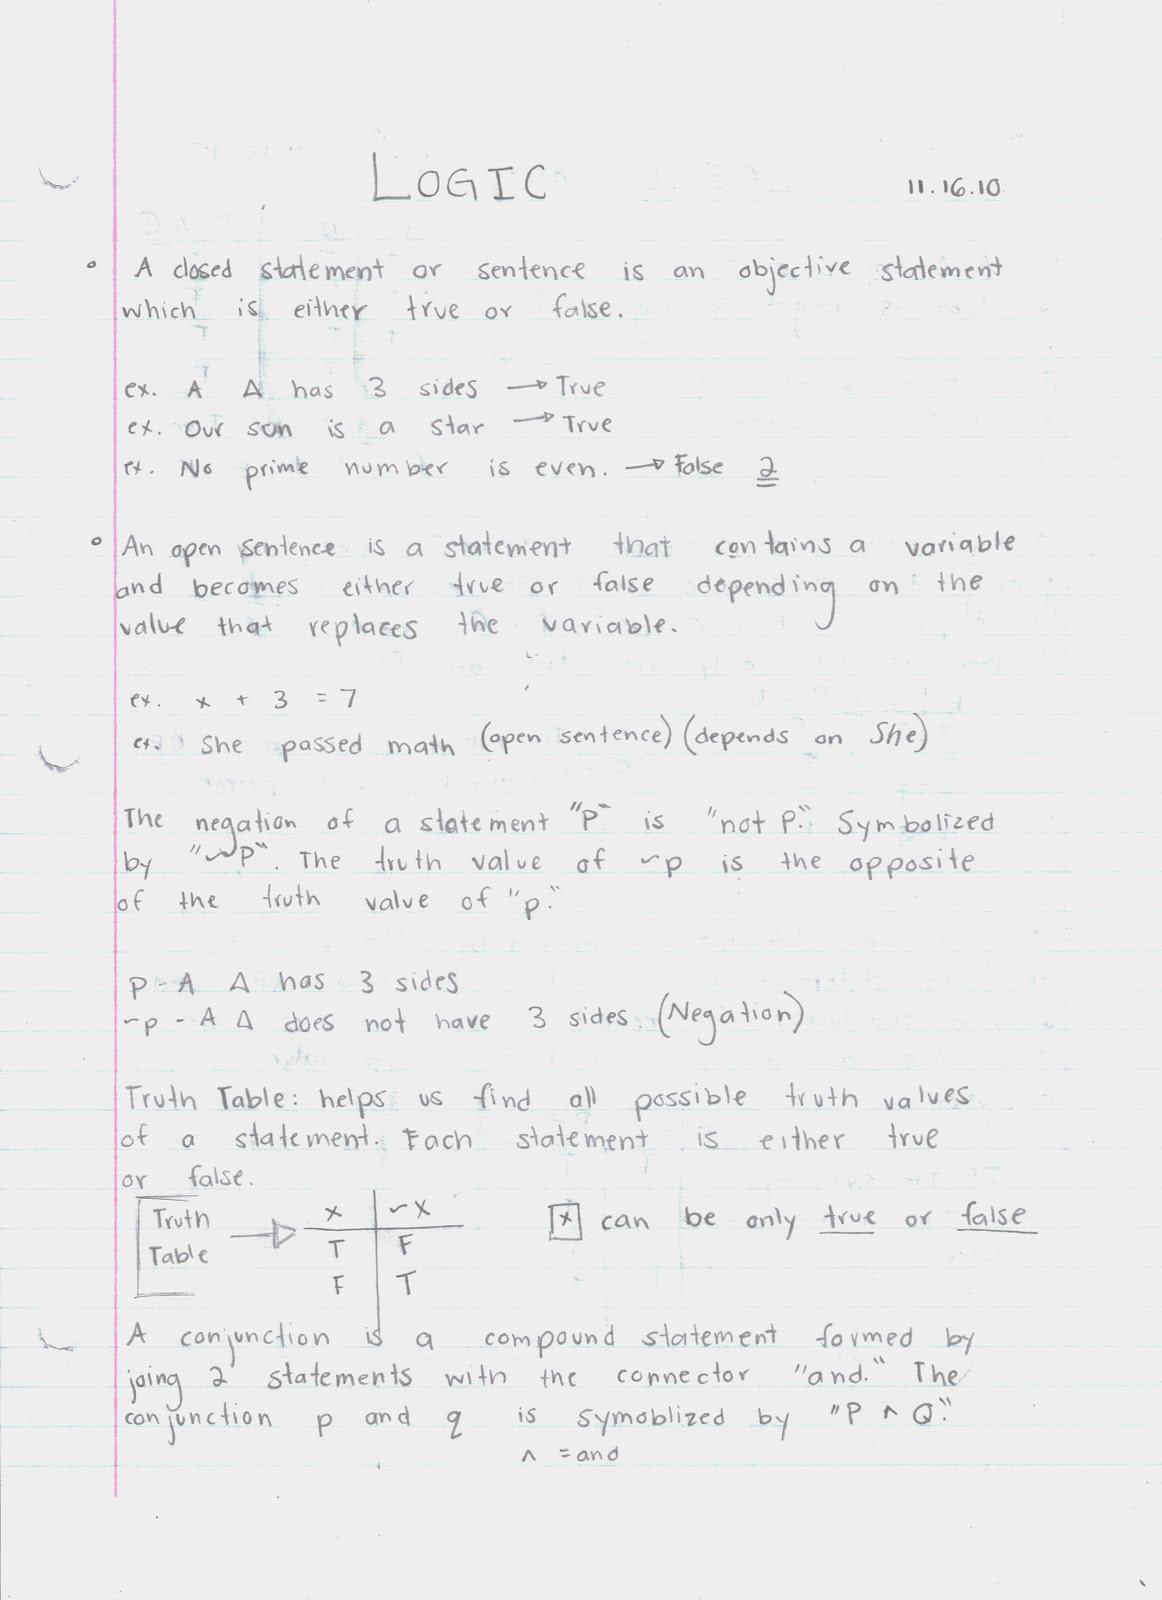 LOGIC 11.16.10
° A closed statement or sentence is an objective statement
which is either true or false.
ex. A Δ has 3 sides → True
ex. Our sun is a star → True
ex. No prime number is even. → False 2
° An open sentence is a statement that contains a variable
and becomes either true or false depending on the
value that replaces the variable.
ex. x + 3 = 7
ex. She passed math (open sentence) (depends on She)
The negation of a statement "P" is "not P." Symbolized
by "~P". The truth value of ~p is the opposite
of the truth value of "p."
P - A Δ has 3 sides
~p - A Δ does not have 3 sides. (Negation)
Truth Table: helps us find all possible truth values
of a statement. Each statement is either true
or false.
Truth Table → x ~x
T F
F T
x can be only true or false
A conjunction is a compound statement formed by
joing 2 statements with the connector "and." The
conjunction p and q is symoblized by "P ∧ Q."
∧ = and